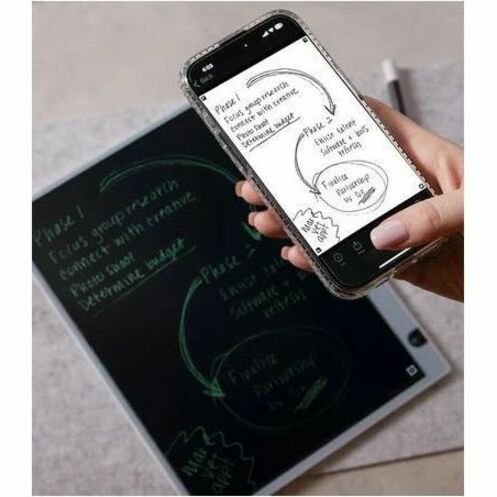 4:03
Back
Phase 1
Focus group research
connect with creative
Photo shoot
Determine budget
Phase 2
Enlist talent
Software + bots
refresh
Finalize
Partnership
by Q3
Make
vet
appt
Phase 1
Focus group research
connect with creative
Photo shoot
Determine budget
Phase 2
Enlist talent
Software +
refresh
Finalize
Partnership
by Q3
Make
vet
appt